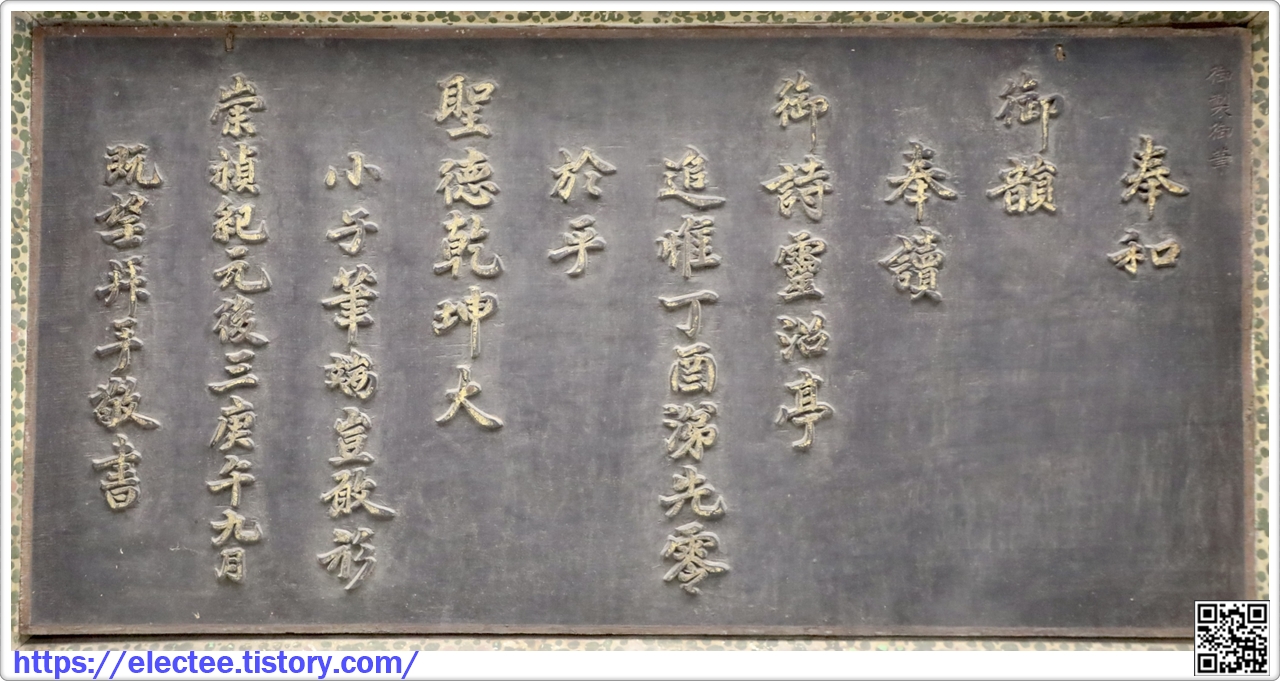 御製御筆
奉和
御韻
奉讀
御詩靈沼亭
追惟丁酉涕先零
於乎
聖德乾坤大
小子筆端豈敢形
崇禎紀元後三庚午九月
旣望拜手敬書
https://electee.tistory.com/